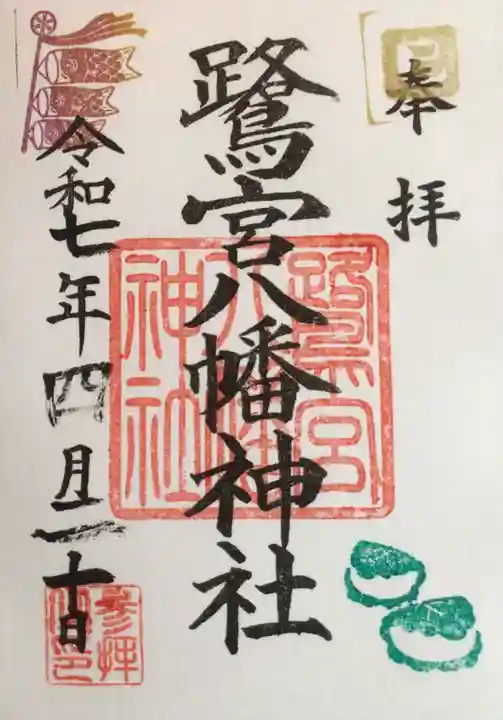 奉拝
巳
鷺宮八幡神社
鷺宮
八幡
神社
令和七年四月二十日
参拝